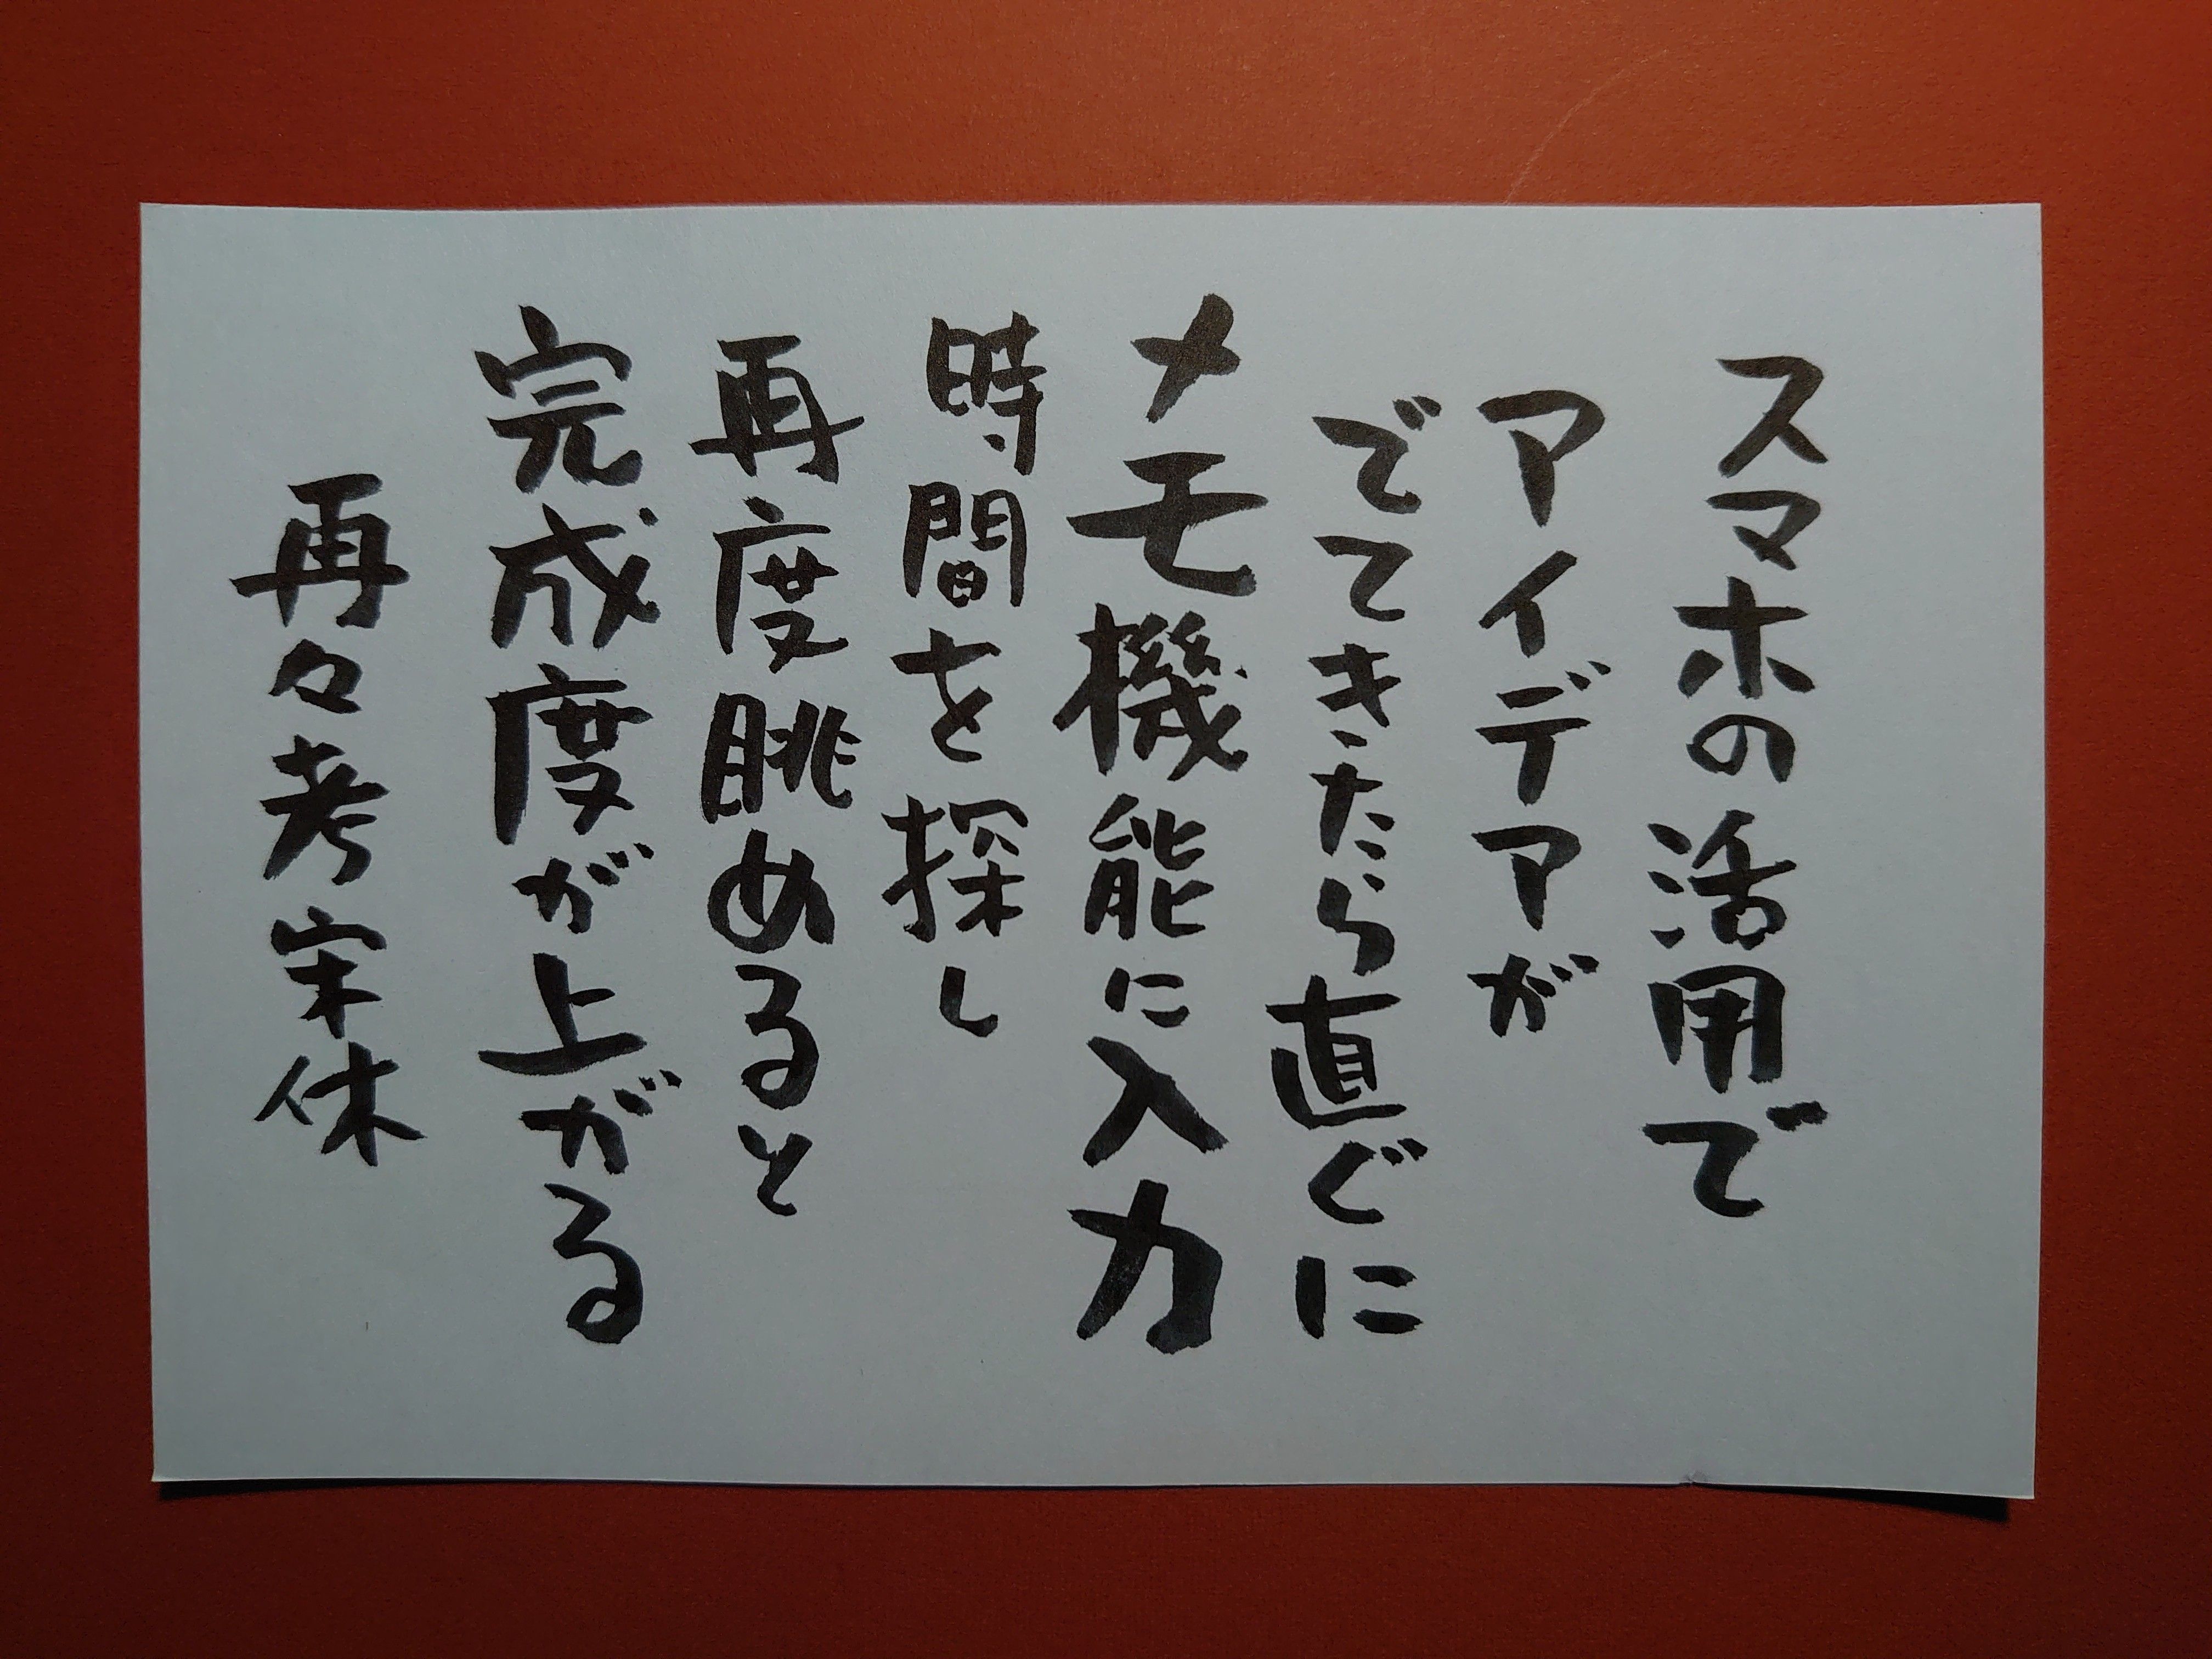 スマホの活用で
アイデアが
でてきたら直ぐに
メモ機能に入力
時間を探し
再度眺めると
完成度が上がる
再々考 宋休